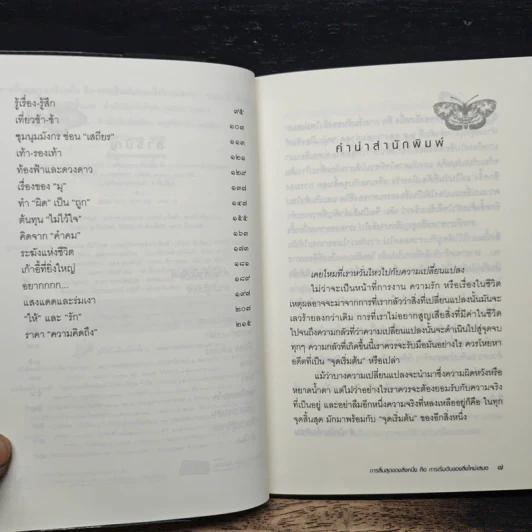 รู้เรื่อง-รู้สึก ๙๕
เที่ยวช้า-ช้า ๑๐๓
ชุมนุมมังกร ซ่อน “เสถียร” ๑๑๓
เท้า-รองเท้า ๑๒๑
ท้องฟ้าและดวงดาว ๑๒๙
เรื่องของ “มุ”
ทำ “ผิด” เป็น “ถูก”
ต้นทุน “ไม่ไว้ใจ” ๑๕๕
คิดจาก “คำคม”
ระฆังแห่งชีวิต ๑๗๓
เก้าอี้ที่ยิ่งใหญ่ ๑๘๑
อยากกกก... ๑๘๙
แสงแดดและร่มเงา ๑๙๗
“ให้” และ “รัก” ๒๐๗
ราคา “ความคิดถึง” ๒๑๕
คำนำสำนักพิมพ์
เคยไหมที่เราหวั่นไหวไปกับความเปลี่ยนแปลง
ไม่ว่าจะเป็นหน้าที่การงาน ความรัก หรือเรื่องในชีวิต
เหตุผลอาจจะมาจากการที่เรากลัวว่าสิ่งที่เปลี่ยนแปลงนั้นมันจะ
เลวร้ายลงกว่าเดิม การที่เราไม่อยากสูญเสียสิ่งที่มีค่าในชีวิต
ไปจนถึงความกลัวที่ว่าความเปลี่ยนแปลงนั้นจะดำเนินไปสู่จุดจบ
ทุกๆ ความกลัวที่เกิดขึ้นนี้เราควรจะรับมือมันอย่างไร ควรโหยหา
อดีตที่เป็น “จุดเริ่มต้น” หรือเปล่า
แม้ว่าบางความเปลี่ยนแปลงจะนำมาซึ่งความผิดหวังหรือ
หยาดน้ำตา แต่ไม่ว่าอย่างไรเราควรจะต้องยอมรับกับความจริง
ที่เป็นอยู่ และอย่าลืมอีกหนึ่งความจริงที่หลงเหลืออยู่ก็คือ ในทุก
จุดสิ้นสุด มักมาพร้อมกับ “จุดเริ่มต้น” ของอีกสิ่งหนึ่ง
การสิ้นสุดของสิ่งหนึ่ง คือ การเริ่มต้นของสิ่งใหม่เสมอ ๗